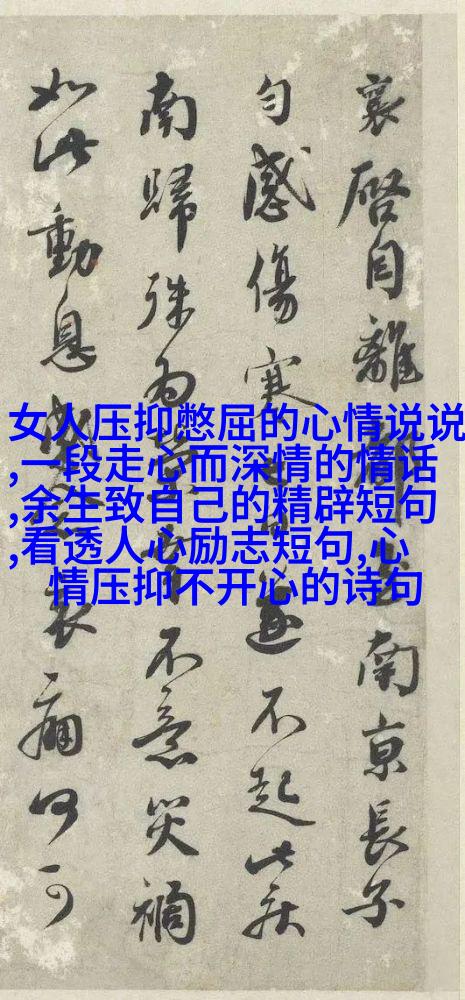 襄啓自離都至南京長子
勻感傷寒遂不起此疾
南歸殊為不意災禍
如此動息哀痛何可
女人压抑憋屈的心情说说
,一段走心而深情的情话
,余生致自己的精辟短句
,看透人心励志短句,心
情压抑不开心的诗句